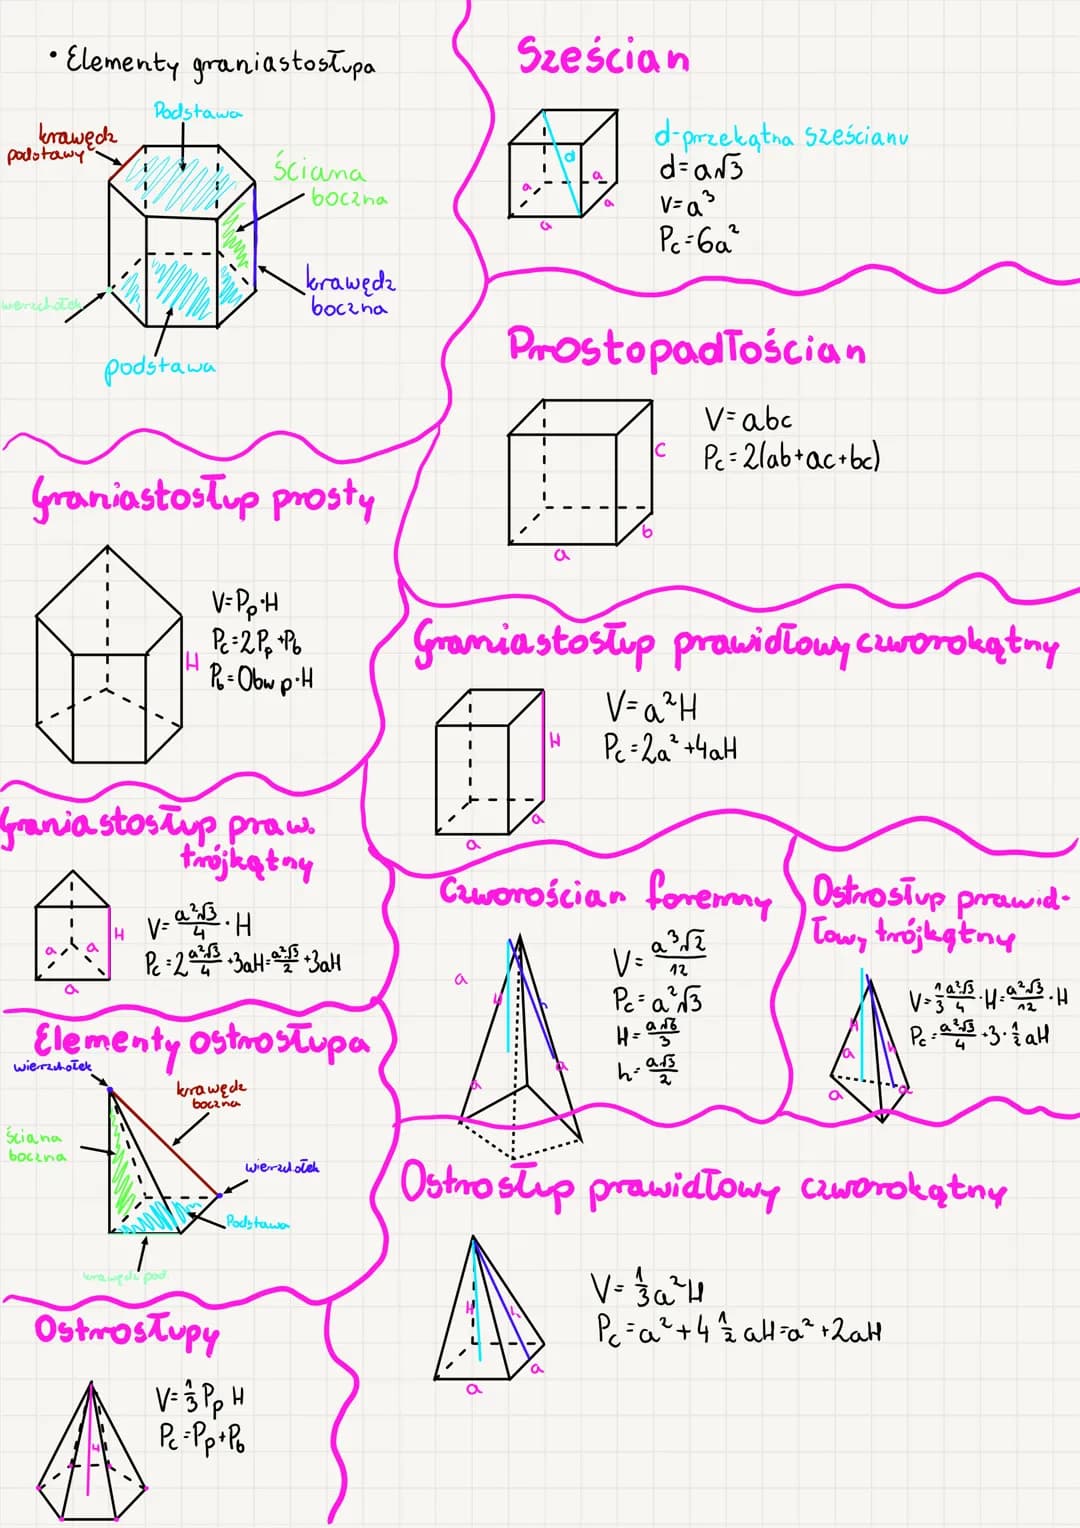 • Elementy graniastosłupa
Podstawa
krawędź
podstawy
ściana
boczna
krawędź
boczna
wierzchołek
podstawa
Sześcian
d
a
a
a
a
d-przekątna sześcianu
d=a√3
V=a³
Pc=6a²
Prostopadłościan
c
b
a
V=abc
Pc=2(ab+ac+bc)
Graniastosłup prosty
H
V=Pp·H
Pc=2Pp+Pb
Pb=Obw p·H
Graniastosłup prawidłowy czworokątny
H
a
a
V=a²H
Pc=2a²+4aH
Graniastosłup praw.
trójkątny
H
a
a
a
V=a²√3/4·H
Pc=2 a²√3/4+3aH=a²√3/2+3aH
Czworościan foremny
a
H
h
a
a
V=a³√2/12
Pc=a²√3
H=a√6/3
h=a√3/2
Ostrosłup prawid-
łowy trójkątny
H
h
a
a
a
V=1/3 a²√3/4·H=a²√3/12·H
Pc=a²√3/4+3·1/2 aH
Elementy ostrosłupa
wierzchołek
krawędź
boczna
ściana
boczna
wierzchołek
Podstawa
krawędź pod
Ostrosłup prawidłowy czworokątny
H
h
a
a
V=1/3a²H
Pc=a²+4 1/2 aH=a²+2aH
Ostrosłupy
H
V=1/3 Pp H
Pc=Pp+Pb